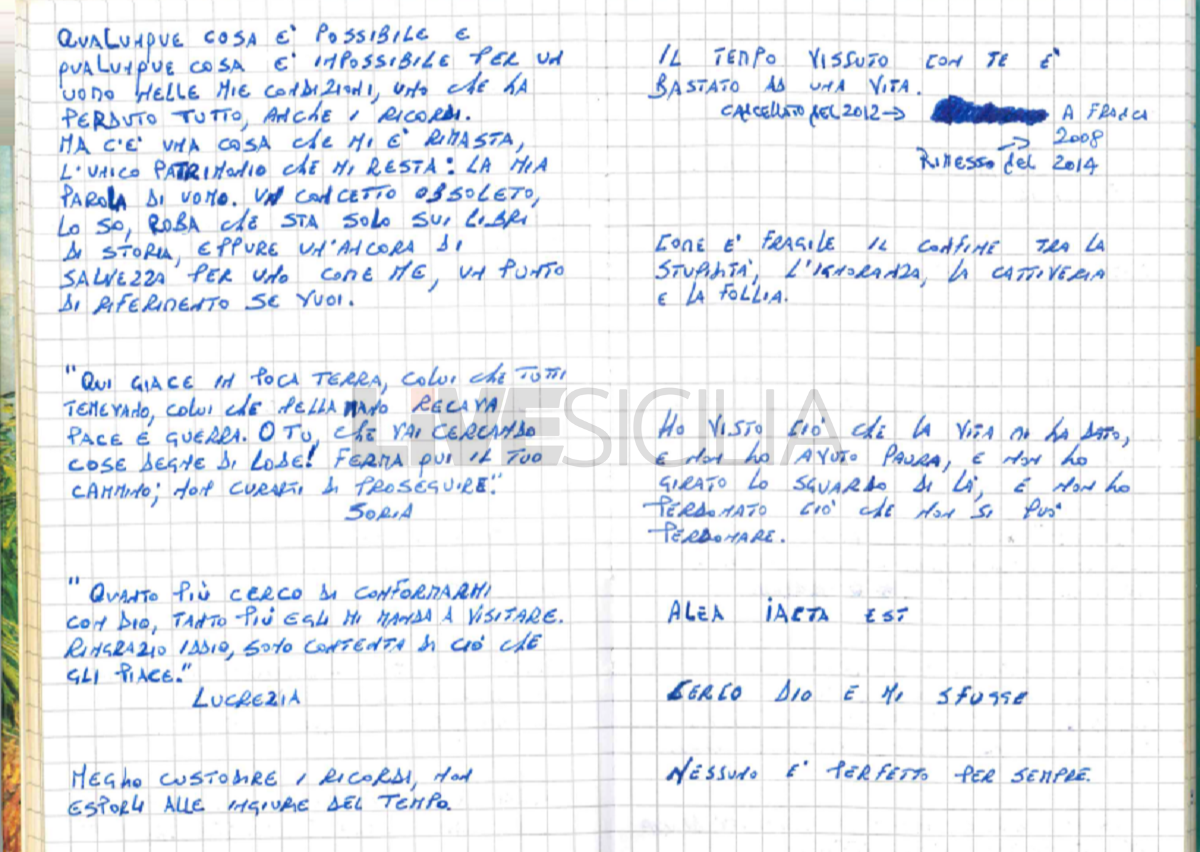 QUALUNQUE COSA E' POSSIBILE E
QUALUNQUE COSA E' IMPOSSIBILE PER UN
UOMO NELLE MIE CONDIZIONI, UNO CHE HA
PERDUTO TUTTO, ANCHE I RICORDI.
MA C'E' UNA COSA CHE MI E' RIMASTA,
L'UNICO PATRIMONIO CHE MI RESTA: LA MIA
PAROLA DI UOMO. UN CONCETTO OBSOLETO,
LO SO, ROBA CHE STA SOLO SUI LIBRI
DI STORIA, EPPURE UN'ANCORA DI
SALVEZZA PER UNO COME ME, UN PUNTO
DI RIFERIMENTO SE VUOI.
"QUI GIACE IN POCA TERRA, COLUI CHE TUTTI
TEMEVANO, COLUI CHE NELLA MANO RECAVA
PACE E GUERRA. O TU, CHE VAI CERCANDO
COSE DEGNE DI LODE! FERMA QUI IL TUO
CAMMINO; NON CURARTI DI PROSEGUIRE."
SORIA
"QUANTO PIÙ CERCO DI CONFORMARMI
CON DIO, TANTO PIÙ EGLI MI MANDA A VISITARE.
RINGRAZIO IDDIO, SONO CONTENTA DI CIÒ CHE
GLI PIACE."
LUCREZIA
MEGLIO CUSTODIRE I RICORDI, NON
ESPORLI ALLE INGIURIE DEL TEMPO.
IL TEMPO VISSUTO CON TE E'
BASTATO AD UNA VITA.
CANCELLATO NEL 2012 → A FRANCA
2008
RIMESSO NEL 2014
COME E' FRAGILE IL CONFINE TRA LA
STUPIDITÀ, L'IGNORANZA, LA CATTIVERIA
E LA FOLLIA.
HO VISTO CIÒ CHE LA VITA MI HA DATO,
E NON HO AVUTO PAURA, E NON HO
GIRATO LO SGUARDO DI LÀ, E NON HO
PERDONATO CIÒ CHE NON SI PUÒ
PERDONARE.
ALEA IACTA EST
CERCO DIO E MI SFUGGE
NESSUNO E' PERFETTO PER SEMPRE.
LIVESICILIA